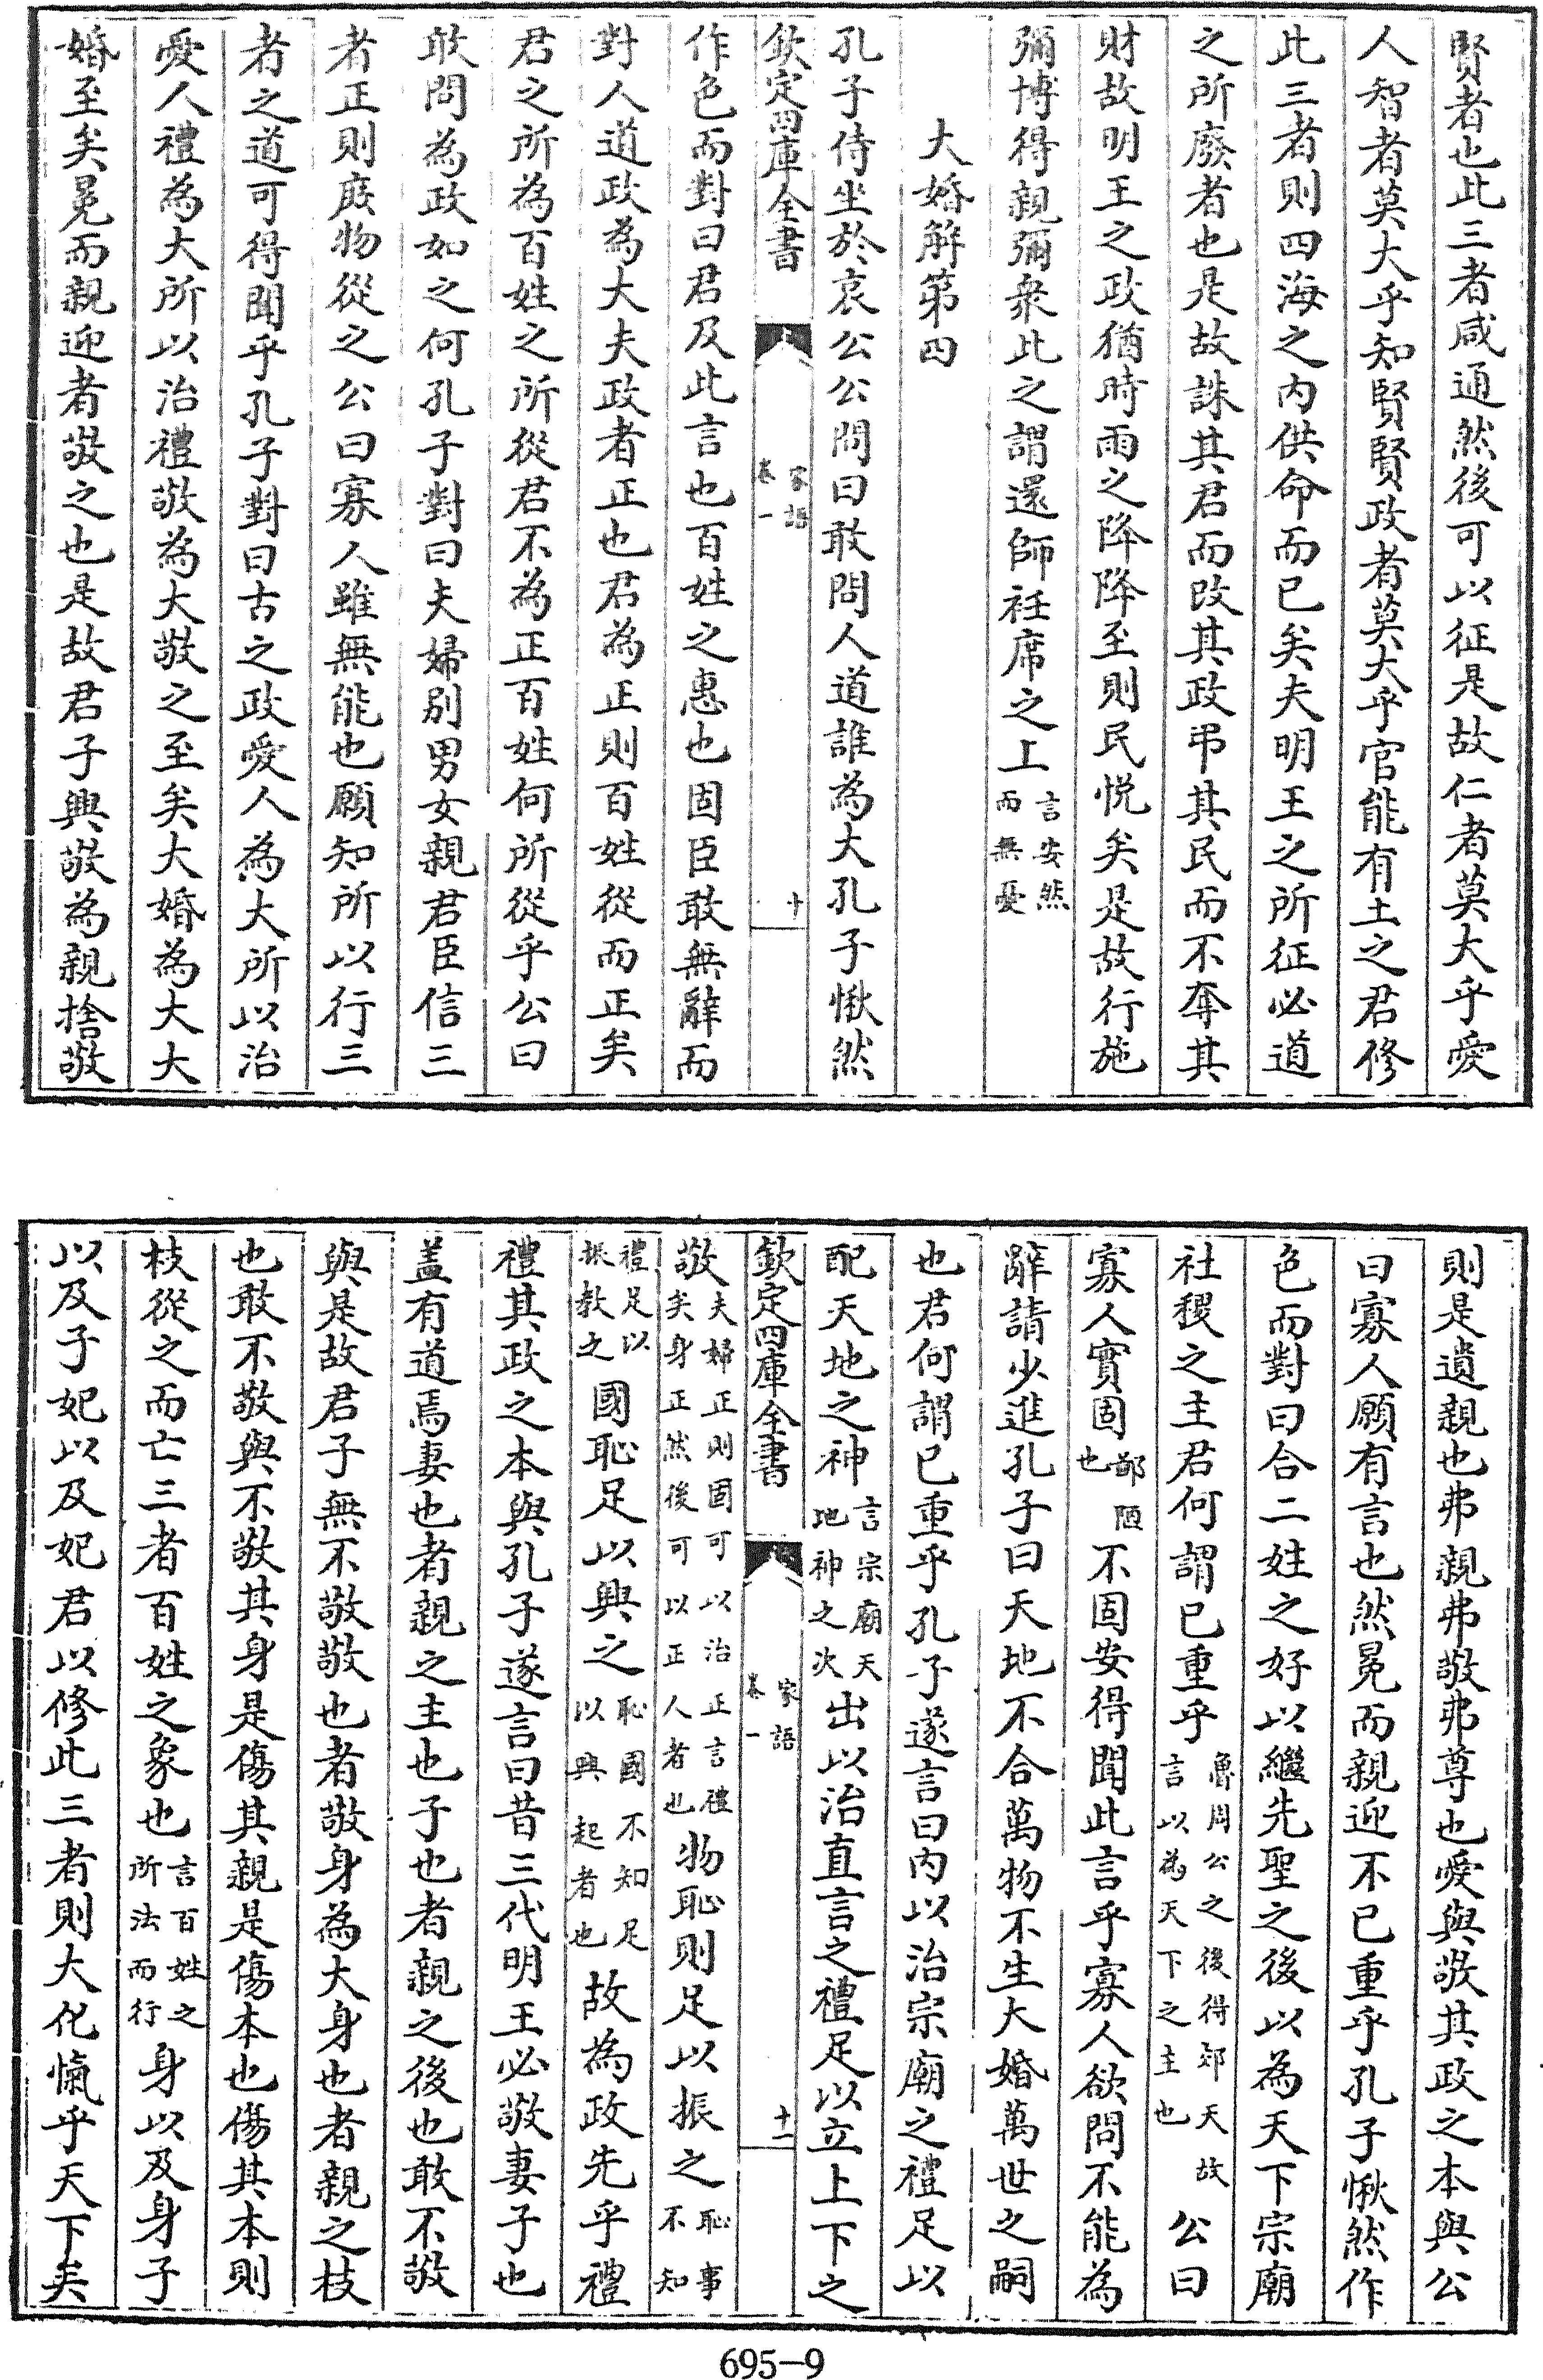 賢者也此三者咸通然後可以征是故仁者莫大乎愛
人智者莫大乎知賢賢政者莫大乎官能有土之君修
此三者則四海之內供命而已矣夫明王之所征必道
之所廢者也是故誅其君而改其政弔其民而不奪其
財故明王之政猶時雨之降降至則民悅矣是故行施
彌博得親彌衆此之謂還師衽席之上言安然而無憂
大婚解第四
孔子侍坐於哀公公問曰敢問人道誰為大孔子愀然
欽定四庫全書 家語卷一 十
作色而對曰君及此言也百姓之惠也固臣敢無辭而
對人道政為大夫政者正也君為正則百姓從而正矣
君之所為百姓之所從君不為正百姓何所從乎公曰
敢問為政如之何孔子對曰夫婦別男女親君臣信三
者正則庶物從之公曰寡人雖無能也願知所以行三
者之道可得聞乎孔子對曰古之政愛人為大所以治
愛人禮為大所以治禮敬為大敬之至矣大婚為大大
婚至矣冕而親迎者敬之也是故君子興敬為親捨敬
則是遺親也弗親弗敬弗尊也愛與敬其政之本與公
曰寡人願有言也然冕而親迎不已重乎孔子愀然作
色而對曰合二姓之好以繼先聖之後以為天下宗廟
社稷之主君何謂已重乎魯周公之後得郊天故言以為天下之主也公曰
寡人實固鄙陋也不固安得聞此言乎寡人欲問不能為
辭請少進孔子曰天地不合萬物不生大婚萬世之嗣
也君何謂已重乎孔子遂言曰內以治宗廟之禮足以
配天地之神言宗廟天地神之次出以治直言之禮足以立上下之
欽定四庫全書 家語卷一 十一
敬夫婦正則固可以治正言禮矣身正然後可以正人者也物恥則足以振之恥事不知
禮足以振教之國恥足以興之恥國不知足以興起者也故為政先乎禮
禮其政之本與孔子遂言曰昔三代明王必敬妻子也
蓋有道焉妻也者親之主也子也者親之後也敢不敬
與是故君子無不敬敬也者敬身為大身也者親之枝
也敢不敬與不敬其身是傷其親是傷本也傷其本則
枝從之而亡三者百姓之象也言百姓之所法而行身以及身子
以及子妃以及妃君以修此三者則大化愾乎天下矣
695-9